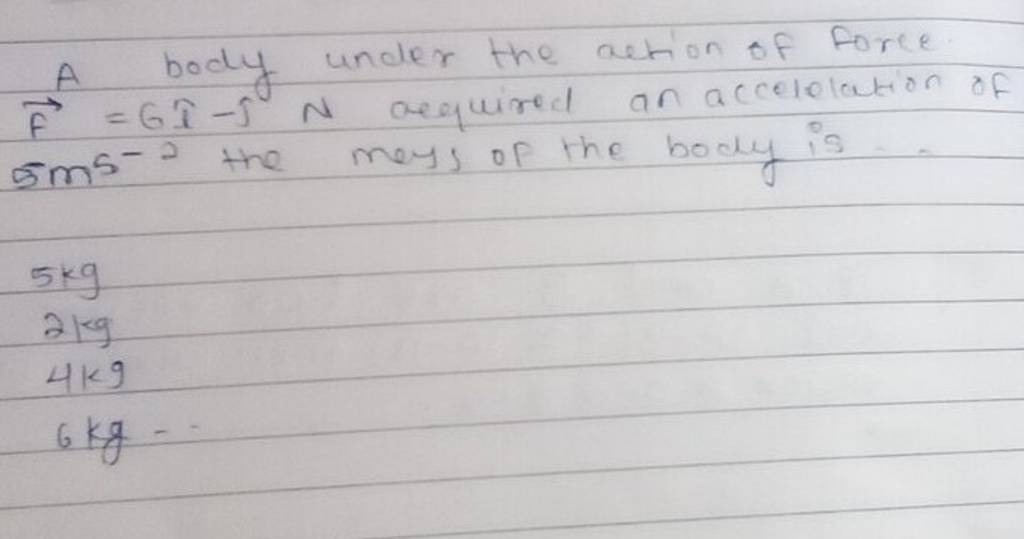 A body under the action of force.
F⃗ = 6î - ĵ N aequired an accelelation of
5ms⁻² the meys of the body is . .
5kg
2kg
4kg
6kg - -